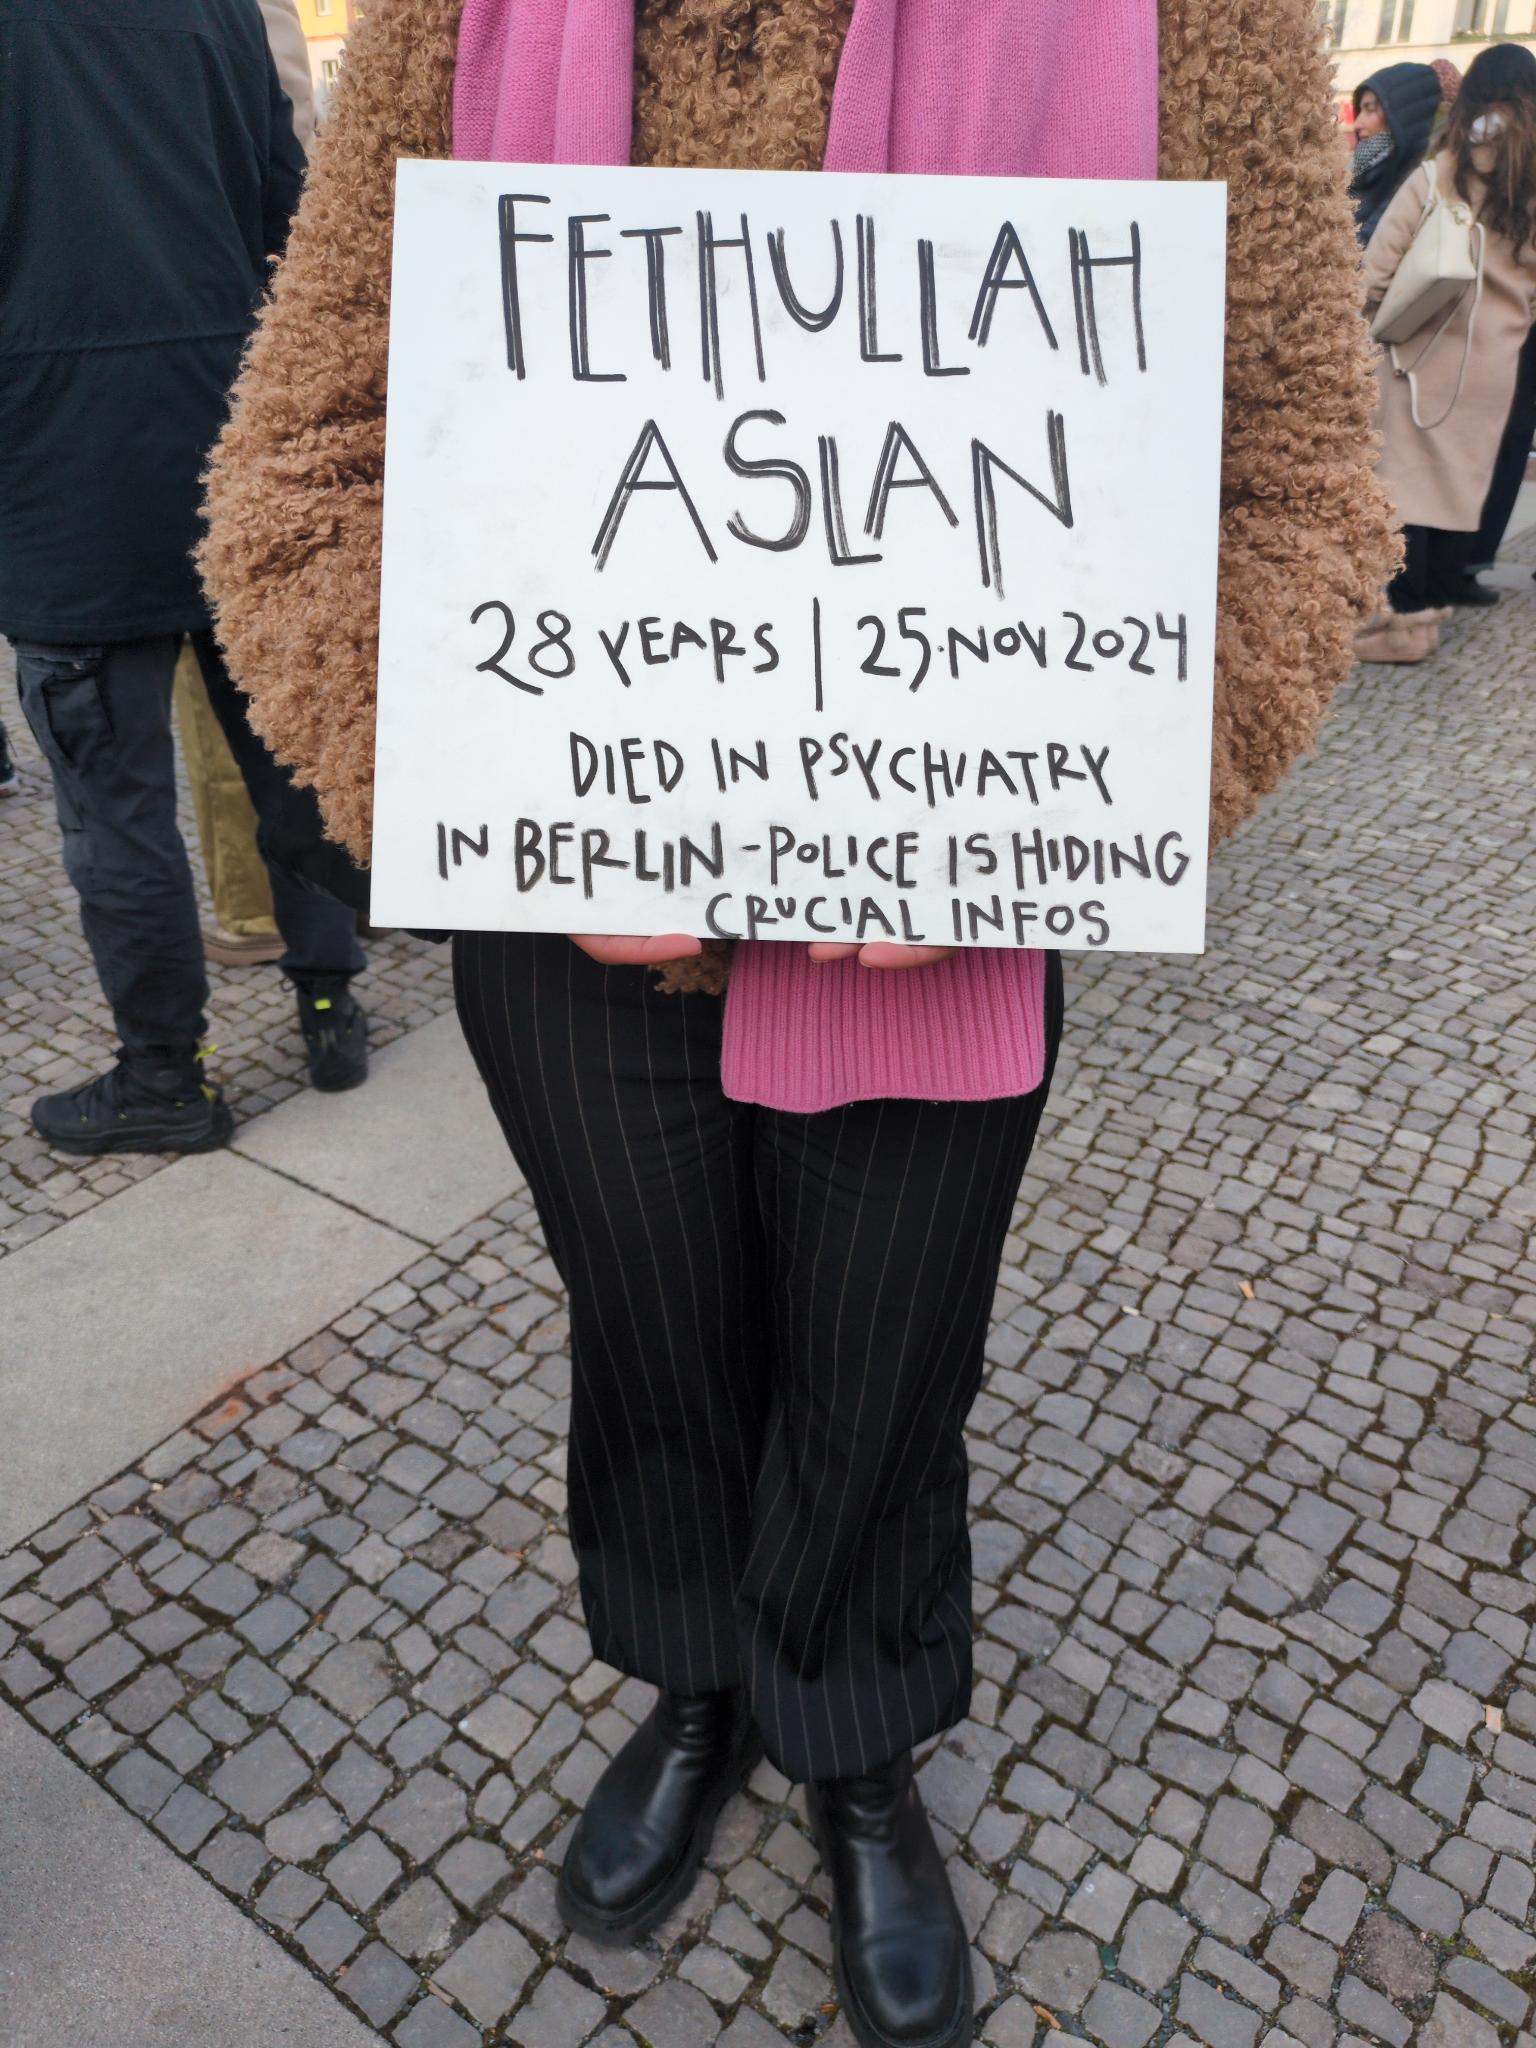 FETHULLAH
ASLAN
28 YEARS | 25.NOV 2024
DIED IN PSYCHIATRY
IN BERLIN - POLICE IS HIDING
CRUCIAL INFOS